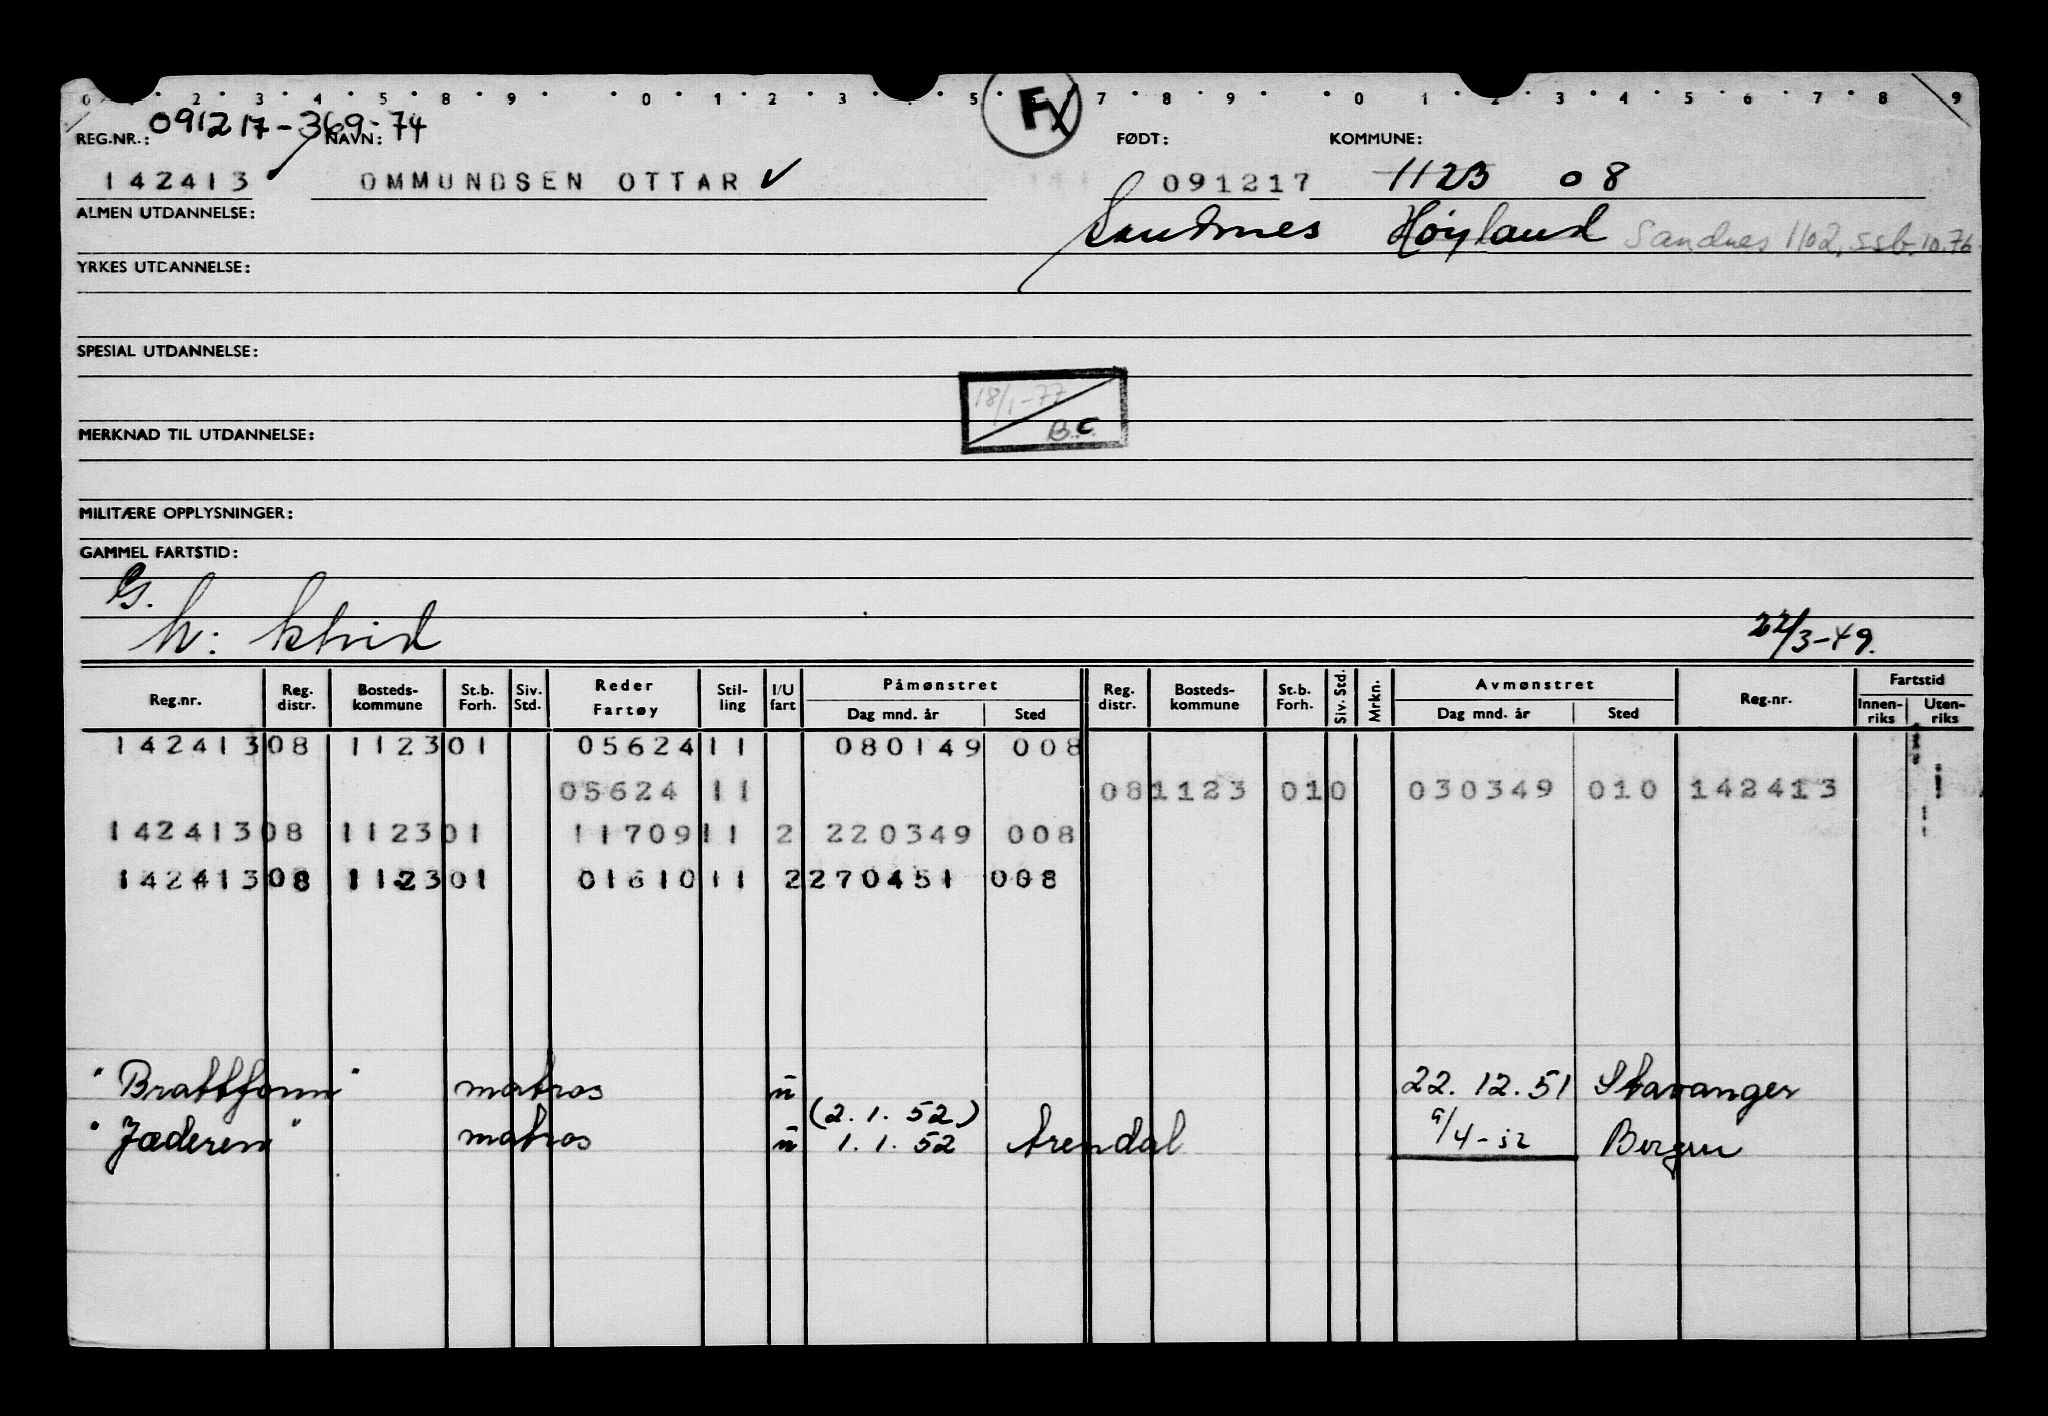 0 2 3 4 5 8 9 0 1 2 3 5 7 8 9 0 1 2 3 4 5 6 7 8 9
FX
REG.NR.: 091217-369-74 NAVN: FØDT: KOMMUNE:
142413 OMMUNDSEN OTTAR ✓ 091217 1123 08
ALMEN UTDANNELSE: Sandnes Høyland Sandnes 1102, ssb. 10.76
YRKES UTDANNELSE:
SPESIAL UTDANNELSE:
18/1-77
B.C.
MERKNAD TIL UTDANNELSE:
MILITÆRE OPPLYSNINGER:
GAMMEL FARTSTID:
G.
22/3-49.
Reg.nr. Reg. distr. Bosteds-kommune St.b. Forh. Siv. Std. Reder Fartøy Stil-ling I/U fart Påmønstret Dag mnd. år Sted Reg. distr. Bosteds-kommune St.b. Forh. Siv. Std. Mrkn. Avmønstret Dag mnd. år Sted Reg.nr. Fartstid Innen-riks Uten-riks
142413 08 1123 01 05624 11 080149 008
05624 11 08 1123 01 0 030349 010 142413
142413 08 1123 01 11709 11 2 220349 008
142413 08 1123 01 01610 11 2 270451 008
"Brattfonn" matros u 22.12.51 Stavanger
(2.1.52)
"Jæderen" matros u 1.1.52 Arendal 9/4-52 Bergen